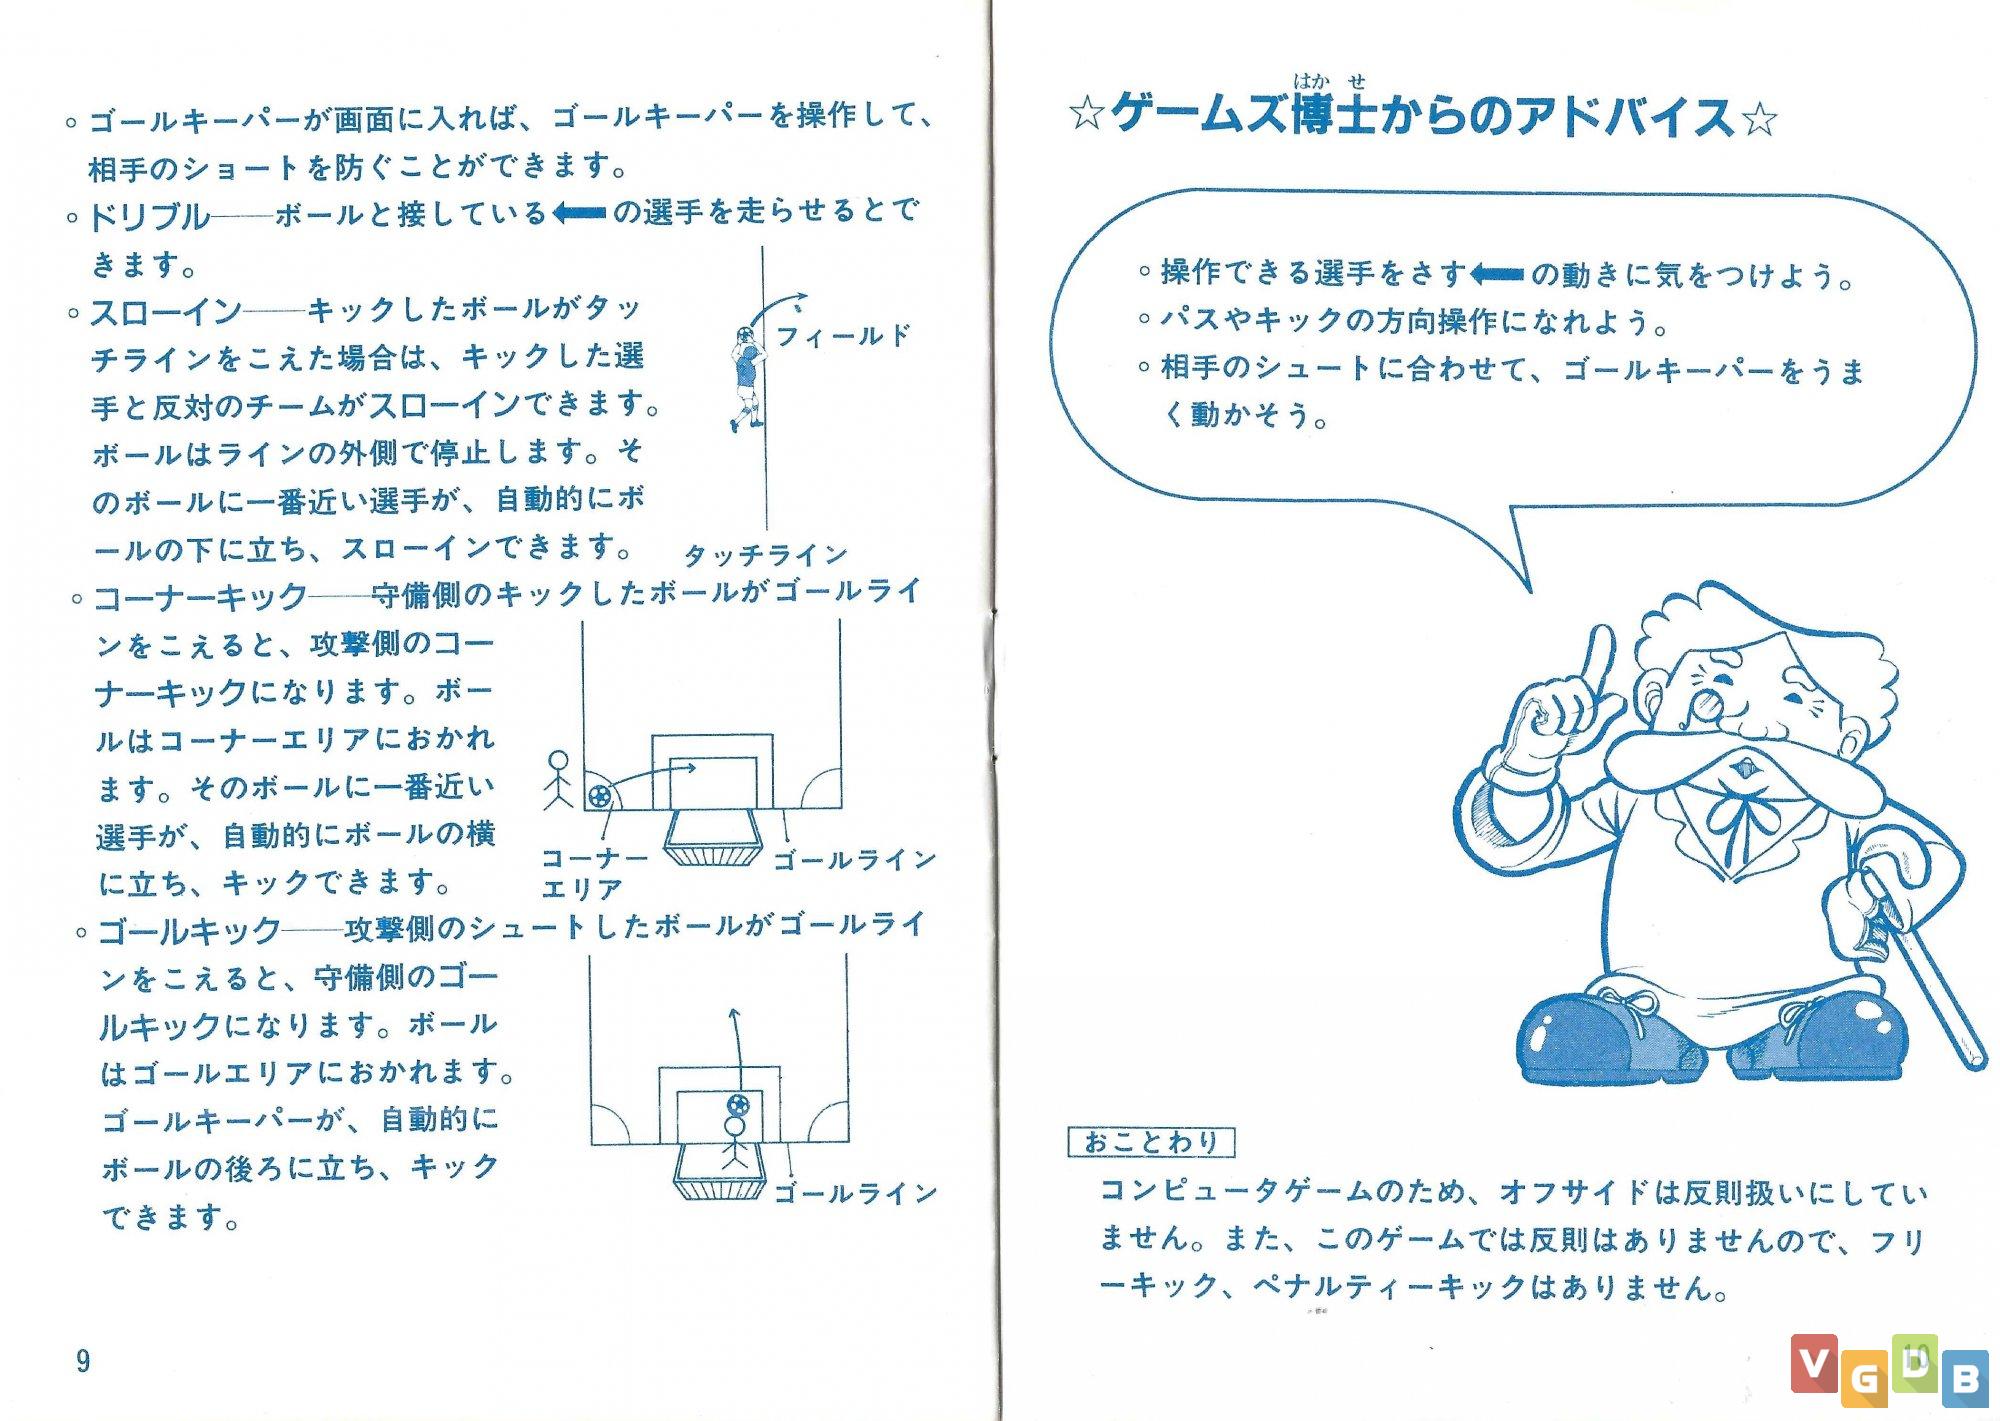 。ゴールキーパーが画面に入れば、ゴールキーパーを操作して、
相手のショートを防ぐことができます。
。ドリブル――ボールと接している⬅の選手を走らせるとで
きます。
。スローイン――キックしたボールがタッ
チラインをこえた場合は、キックした選
手と反対のチームがスローインできます。
ボールはラインの外側で停止します。そ
のボールに一番近い選手が、自動的にボ
ールの下に立ち、スローインできます。
フィールド
タッチライン
。コーナーキック――守備側のキックしたボールがゴールライ
ンをこえると、攻撃側のコー
ナーキックになります。ボー
ルはコーナーエリアにおかれ
ます。そのボールに一番近い
選手が、自動的にボールの横
に立ち、キックできます。
コーナー
エリア
ゴールライン
。ゴールキック――攻撃側のシュートしたボールがゴールライ
ンをこえると、守備側のゴー
ルキックになります。ボール
はゴールエリアにおかれます。
ゴールキーパーが、自動的に
ボールの後ろに立ち、キック
できます。
ゴールライン
9
はかせ
☆ゲームズ博士からのアドバイス☆
。操作できる選手をさす⬅の動きに気をつけよう。
。パスやキックの方向操作になれよう。
。相手のシュートに合わせて、ゴールキーパーをうま
く動かそう。
おことわり
コンピュータゲームのため、オフサイドは反則扱いにしてい
ません。また、このゲームでは反則はありませんので、フリ
ーキック、ペナルティーキックはありません。
10
VGDB